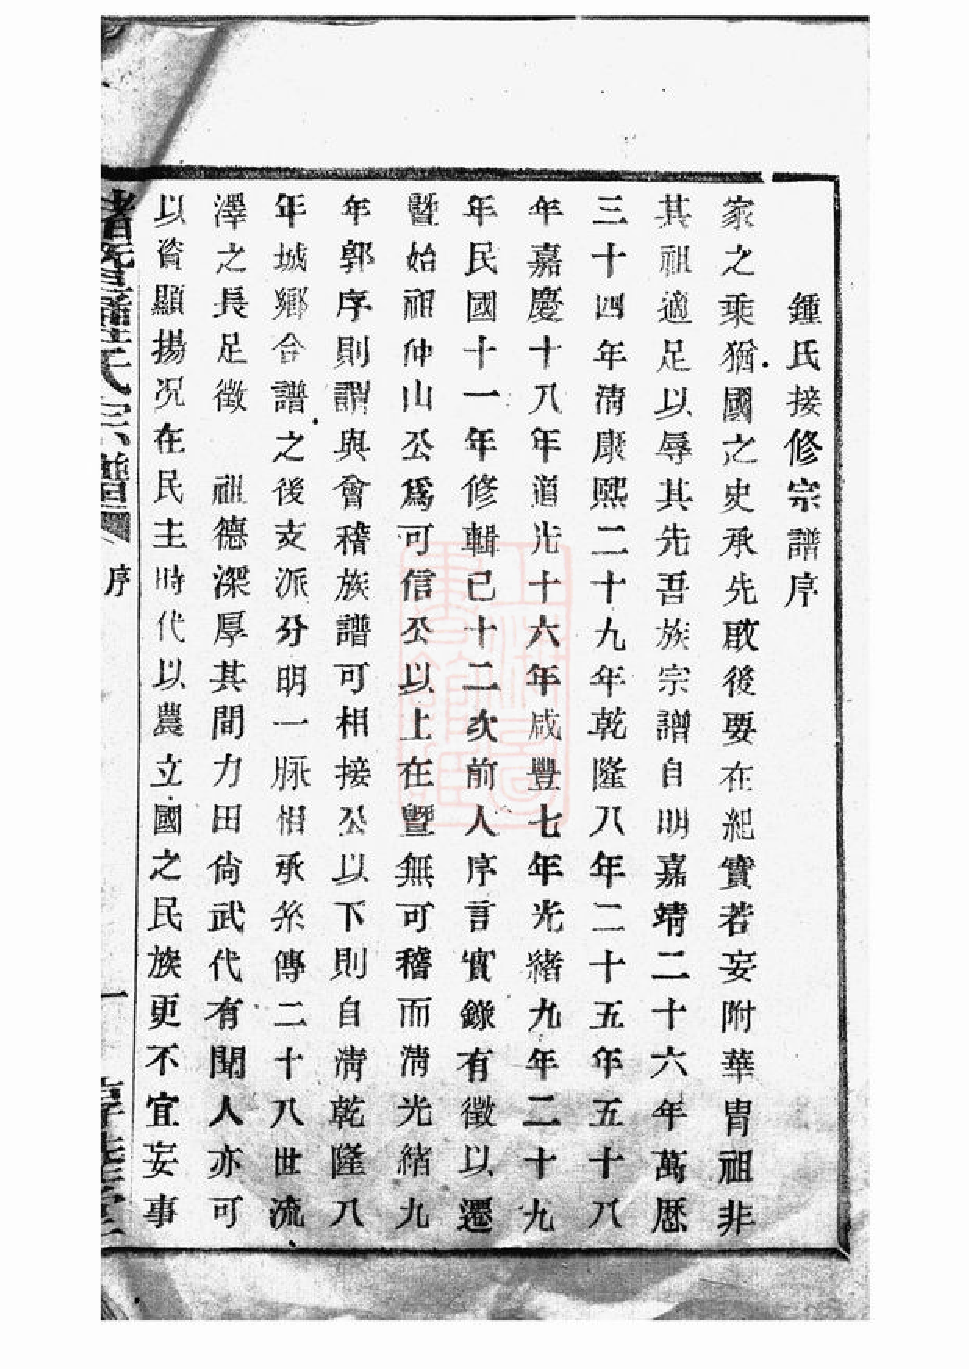 鍾氏接修宗譜序
家之乘猶國之史承先啟後要在紀實若妄附華冑祖非
其祖適足以辱其先吾族宗譜自明嘉靖二十六年萬厯
三十四年清康熙二十九年乾隆八年二十五年五十八
年嘉慶十八年道光十六年咸豐七年光緒九年二十九
年民國十一年修輯已十二次前人序言實錄有徵以遷
暨始祖仲山公爲可信公以上在暨無可稽而清光緒九
年郭序則謂與會稽族譜可相接公以下則自清乾隆八
年城鄉合譜之後支派分明一脈相承糸傳二十八世流
澤之長足徵　祖德深厚其間力田尙武代有聞人亦可
以資顯揚况在民主時代以農立國之民族更不宜妄事
諸暨鍾氏宗譜　序　一
上海圖書館藏